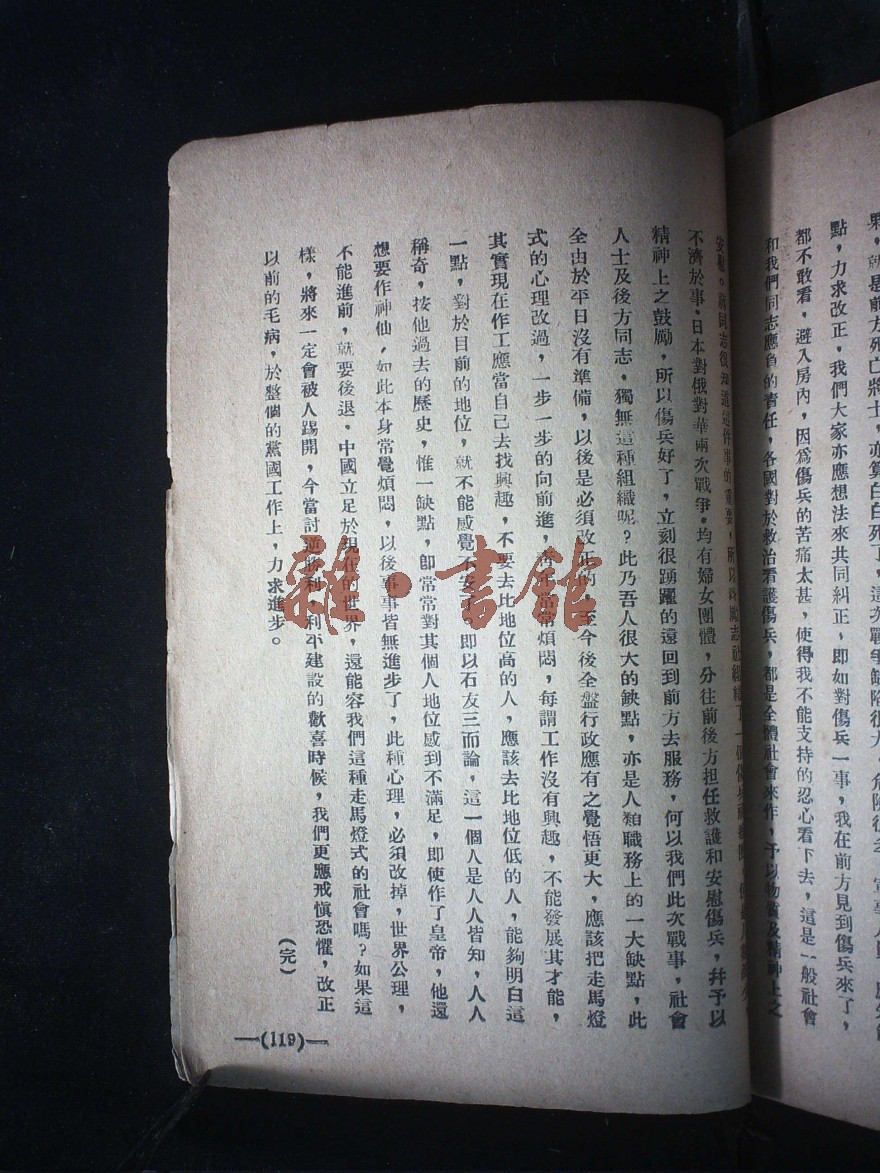 夥,就是前方死亡將士,亦算白白死了,這次戰爭缺陷很大,危險很多,
點,力求改正,我們大家亦應想法來共同糾正,即如對傷兵一事,我在前方見到傷兵來了,
都不敢看,避入房內,因爲傷兵的苦痛太甚,使得我不能支持的忍心看下去,這是一般社會
和我們同志應負的責任,各國對於救治看護傷兵,都是全體社會來作,予以物質及精神上之
安慰。同志很知道這件事的重要,所以勵志社組織了一個傷兵
不濟於事・日本對俄對華兩次戰爭・均有婦女團體,分往前後方担任救護和安慰傷兵,幷予以
精神上之鼓勵,所以傷兵好了,立刻很踴躍的還回到前方去服務,何以我們此次戰事,社會
人士及後方同志,獨無這種組織呢?此乃吾人很大的缺點,亦是人類職務上的一大缺點,此
全由於平日沒有準備,以後是必須改正的,至今後全盤行政應有之覺悟更大,應該把走馬燈
式的心理改過,一步一步的向前進,常煩悶,每謂工作沒有興趣,不能發展其才能,
其實現在作工應當自己去找興趣,不要去比地位高的人,應該去比地位低的人,能夠明白這
一點,對於目前的地位,就不能感覺不安了,即以石友三而論,這一個人是人人皆知,人人
稱奇,按他過去的歷史,惟一缺點,卽常常對其個人地位感到不滿足,即使作了皇帝,他還
想要作神仙,如此本身常覺煩悶,以後事事皆無進步了,此種心理,必須改掉,世界公理,
不能進前,就要後退・中國立足於現在的世界,還能容我們這種走馬燈式的社會嗎?如果這
樣,將來一定會被人踢開,今當討逆勝利,利平建設的歡喜時候,我們更應戒愼恐懼,改正
以前的毛病,於整個的黨國工作上,力求進步。
(完)
—(119)—
雜・書館